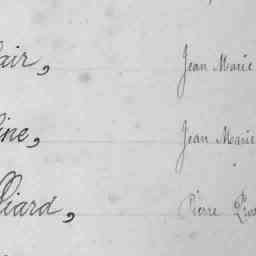 air, Jean Marie
ine, Jean Marie
iard, Pierre